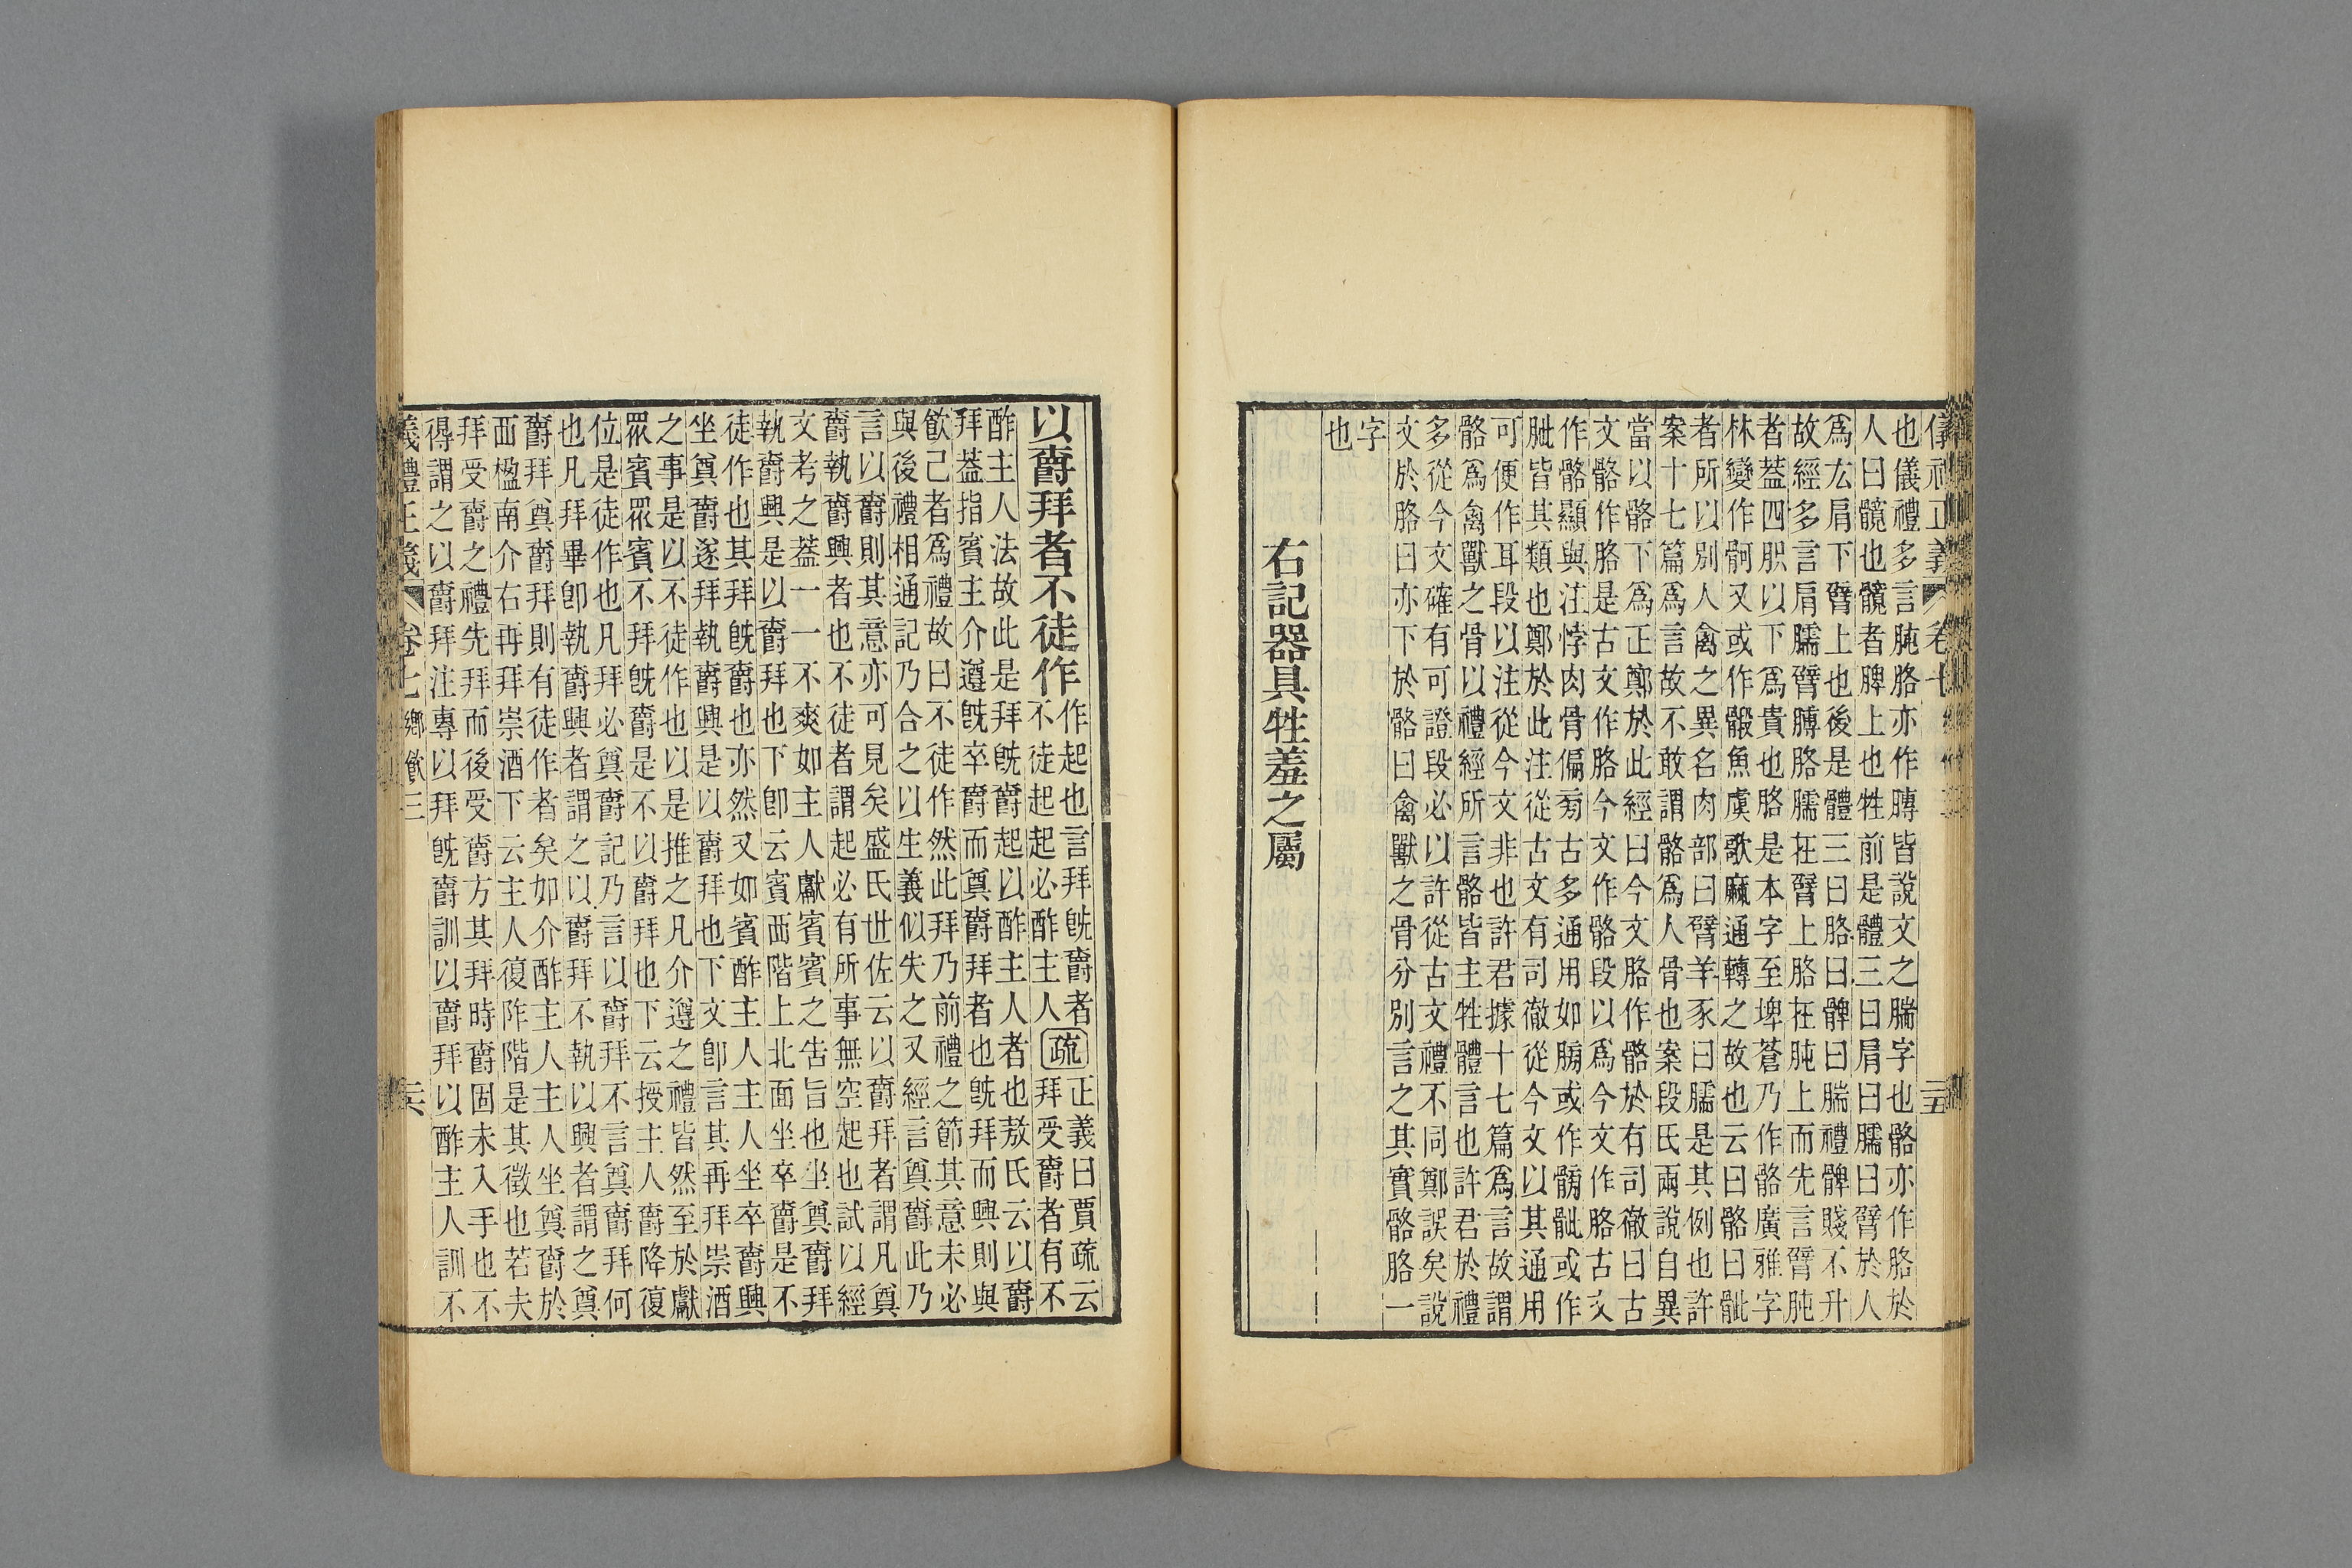 儀禮正義 卷七 鄉飲三 二五
也儀禮多言肫胳亦作膞皆說文之腨字也骼亦作胳於
人曰髖也髖者脾上也牲前是體三曰肩曰臑曰臂於人
爲厷肩下臂上也後是體三曰胳曰髀曰腨禮髀賤不升
故經多言肩臑臂膞胳臑在臂上胳在肫上而先言臂肫
者葢四胑以下爲貴也胳是本字至埤蒼乃作骼廣雅字
林變作䯊又或作骽魚虞歌麻通轉之故也云曰骼曰骴
者所以別人禽之異名肉部曰臂羊豕曰臑是其例也許
案十七篇爲言故不敢謂骼爲人骨也案段氏兩說自異
當以骼下爲正鄭於此經曰今文胳作骼於有司徹曰古
文骼作胳是古文作胳今文作骼段以爲今文作胳古文
作骼顯與注悖肉骨偏旁古多通用如膀或作髈骴或作
胔皆其類也鄭於此注從古文有司徹從今文以其通用
可便作耳段以注從今文非也許君據十七篇爲言故謂
骼爲禽獸之骨以禮經所言骼皆主牲體言也許君於禮
多從今文確有可證段必以許從古文禮不同鄭誤矣說
文於胳曰亦下於骼曰禽獸之骨分別言之其實骼胳一
字
也
右記器具牲羞之屬
以爵拜者不徒作
作起也言拜旣爵者
不徒起起必酢主人
疏
正義曰賈疏云
拜受爵者有不
酢主人法故此是拜旣爵起以酢主人者也敖氏云以爵
拜葢指賓主介遵旣卒爵而奠爵拜者也旣拜而興則與
飮己者爲禮故曰不徒作然此拜乃前禮之節其意未必
與後禮相通記乃合之以生義似失之又經言奠爵此乃
言以爵則其意亦可見矣盛氏世佐云以爵拜者謂凡奠
爵執爵興者也不徒者謂起必有所事無空起也試以經
文考之葢一一不爽如主人獻賓賓之告旨也坐奠爵拜
執爵興是以爵拜也下卽云賓西階上北面坐卒爵是不
徒作也其拜旣爵也亦然又如賓酢主人主人坐卒爵興
坐奠爵遂拜執爵興是以爵拜也下文卽言其再拜崇酒
之事是以不徒作也以是推之凡介遵之禮皆然至於獻
眾賓眾賓不拜旣爵是不以爵拜也下云授主人爵降復
位是徒作也凡拜必奠爵記乃言以爵拜不言奠爵拜何
也凡拜畢卽執爵興者謂之以爵拜不執以興者謂之奠
爵拜奠爵拜則有徒作者矣如介酢主人主人坐奠爵於
西楹南介右再拜崇酒下云主人復阼階是其徵也若夫
拜受爵之禮先拜而後受爵方其拜時爵固未入手也不
得謂之以爵拜注專以拜旣爵訓以爵拜以酢主人訓不
義禮正義 卷七 鄉飲三 二六